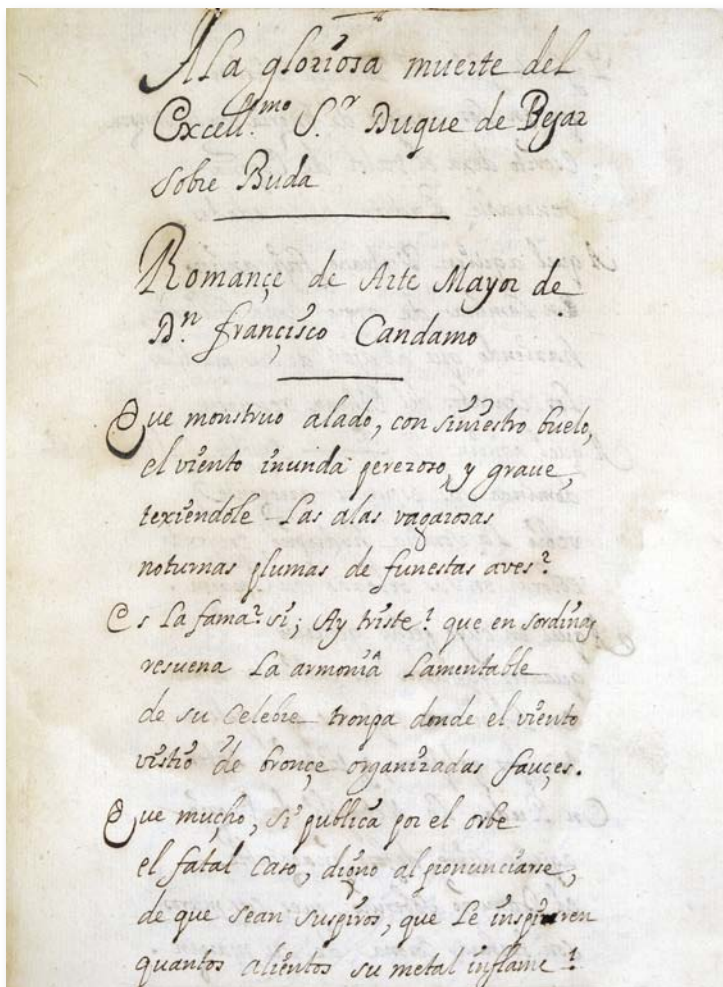 A La gloriosa muerte del
Excell.mo S.r Duque de Bejar
sobre Buda
Romançe de Arte Mayor de
D.n françisco Candamo
Que monstruo alado, con siniestro buelo,
el viento inunda perezoso, y graue,
texiendole Las alas vagarosas
noturnas plumas de funestas aves?
Es La fama? si; Ay triste! que en sordinas
resuena La armonia Lamentable
de su Celebre trompa donde el viento
vistió de bronçe organizadas fauçes.
Que mucho, si publica por el orbe
el fatal caso, digno al pronunciarse,
de que sean suspiros, que Le inspiraren
quantos alientos su metal inflame!